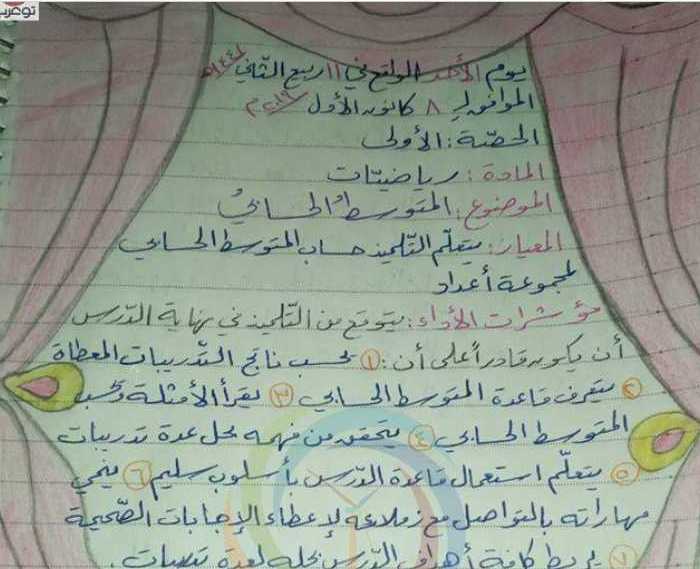 توعرب
يوم الأحد الواقع في ١١ ربيع الثّاني ١٤٤١هـ
الموافق لِـ ٨ كانون الأول ٢٠١٩م
الحصّة: الأولى
المادة: رياضيّات
الموضوع: المتوسطُ الحسابيُّ
المعيار: يتعلّم التّلميذ حساب المتوسط الحسابي
لمجموعة أعداد
مؤشرات الأداء: يتوقع من التّلميذ في نهاية الدّرس
أن يكون قادراً على أن: ١ يحسب ناتج التّدريبات المعطاة
٢ يتعرف قاعدة المتوسط الحسابي ٣ يقرأ الأمثلة ويحسب
المتوسط الحسابي ٤ يتحقق من فهمه بحل عدة تدريبات
٥ يتعلّم استعمال قاعدة الدّرس بأسلوب سليم ٦ ينمي
مهاراته بالتواصل مع زملائه لإعطاء الإجابات الصّحيحة
٧ يربط كافة أهداف الدّرس بحله لعدة تدريبات.